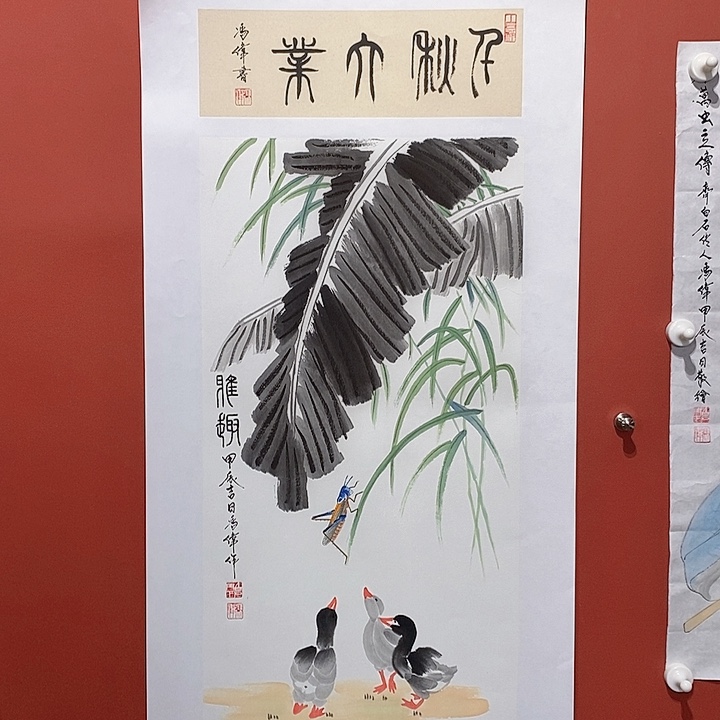 千秋大業
馮偉書
雅趣
甲辰吉日馮偉作
萬虫立傳 齊白石传人馮偉甲辰吉日敬繪